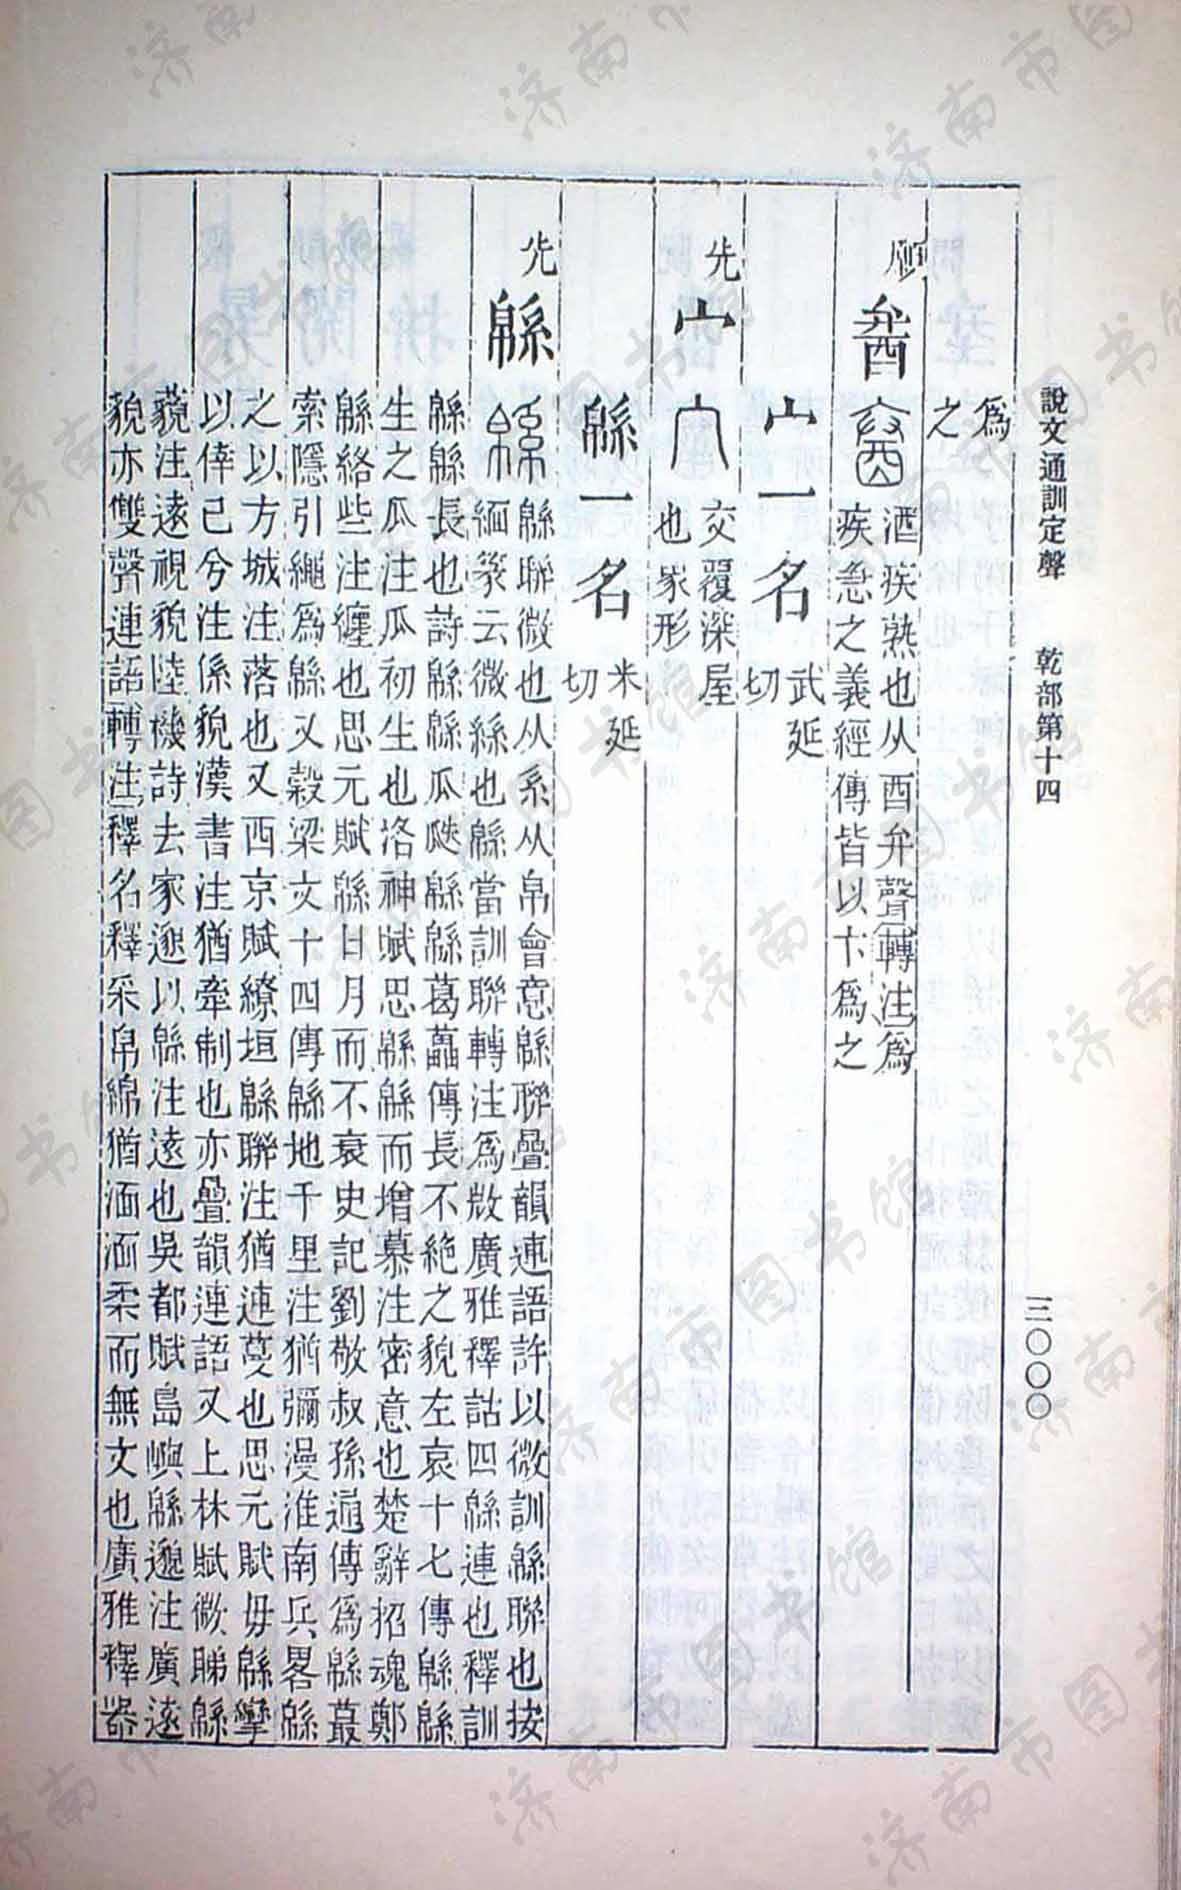 說文通訓定聲 乾部第十四 三〇〇〇
爲
之
願 𨣔 酒疾熟也从酉弁聲轉注爲
疾急之義經傳皆以卞爲之
宀一名 武延
切
先 宀 交覆深屋
也象形
緜一名 米延
切
先 緜 緜聯微也从系从帛會意緜聯疊韻連語許以微訓緜聯也按
緬篆云微絲也緜當訓聯轉注爲㪚廣雅釋詁四緜連也釋訓
緜緜長也詩緜緜瓜瓞緜緜葛藟傳長不絶之貌左哀十七傳緜緜
生之瓜注瓜初生也洛神賦思緜緜而增慕注密意也楚辭招魂鄭
緜絡些注纏也思元賦緜日月而不衰史記劉敬叔孫通傳爲緜蕞
索隱引繩爲緜又穀梁文十四傳緜地千里注猶彌漫淮南兵畧緜
之以方城注落也又西京賦繚垣緜聯注猶連蔓也思元賦毋緜攣
以倖己兮注係貌漢書注猶牽制也亦疊韻連語又上林賦微睇緜
藐注遠視貌陸機詩去家邈以緜注遠也吳都賦島嶼緜邈注廣遠
貌亦雙聲連語轉注釋名釋采帛綿猶湎湎柔而無文也廣雅釋器